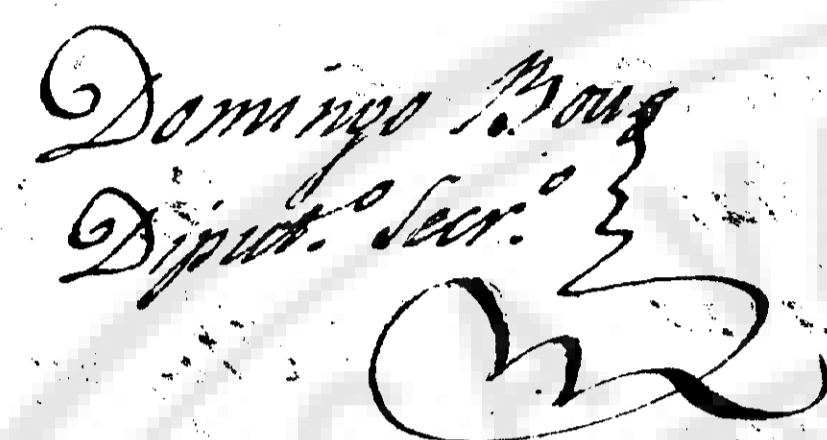 Domingo Bou
Diput.º Secr.º